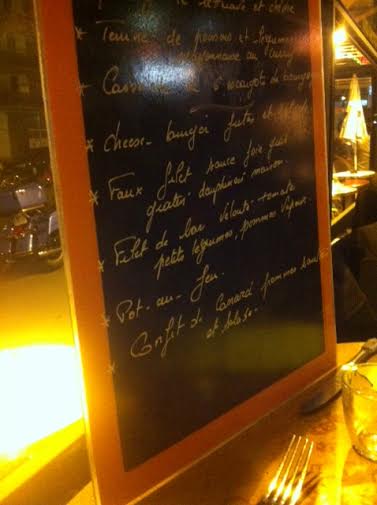 et chèvre
* Terrine de poissons et légumes
mayonnaise au curry
* Cassolette de 6 escargots de bourgogne
* Cheese-burger frites et salade
* Faux filet sauce foie gras
gratin dauphinois maison.
* Filet de bar velouté-tomate
petits légumes, pommes vapeur.
* Pot-au-feu.
* Confit de Canard, pommes sautées
et salade.